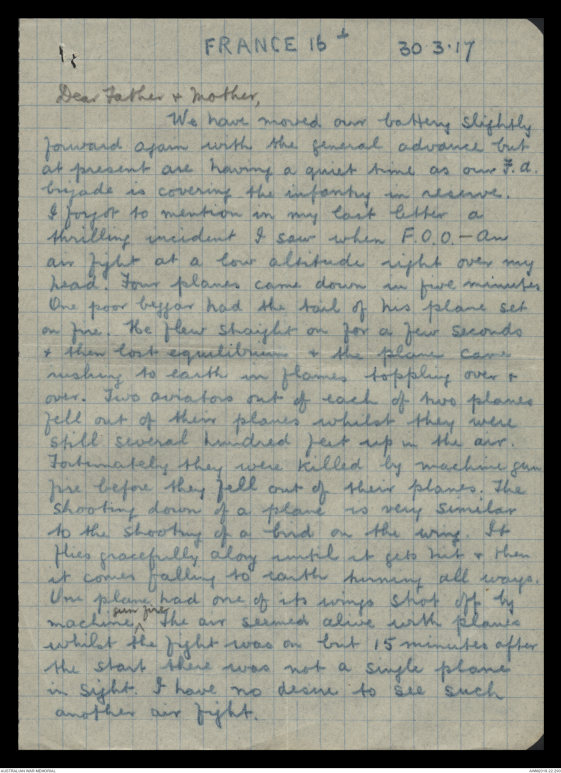 FRANCE 16 30.3.17
Dear Father & Mother,
We have moved our battery slightly
forward again with the general advance but
at present are having a quiet time as our F.A.
brigade is covering the infantry in reserve.
I forgot to mention in my last letter a
thrilling incident I saw when F.O.O. – An
air fight at a low altitude right over my
head. Four planes came down in five minutes
One poor beggar had the tail of his plane set
on fire. He flew straight on for a few seconds
& then lost equilibrium & the plane came
rushing to earth in flames toppling over &
over. Two aviators out of each of two planes
fell out of their planes whilst they were
still several hundred feet up in the air.
Fortunately they were killed by machine gun
fire before they fell out of their planes. The
shooting down of a plane is very similar
to the shooting of a bird on the wing. It
flies gracefully along until it gets hit & then
it comes falling to earth turning all ways.
One plane had one of its wings shot off by
machine gun fire. The air seemed alive with planes
whilst the fight was on but 15 minutes after
the start there was not a single plane
in sight. I have no desire to see such
another air fight.
AUSTRALIAN WAR MEMORIAL